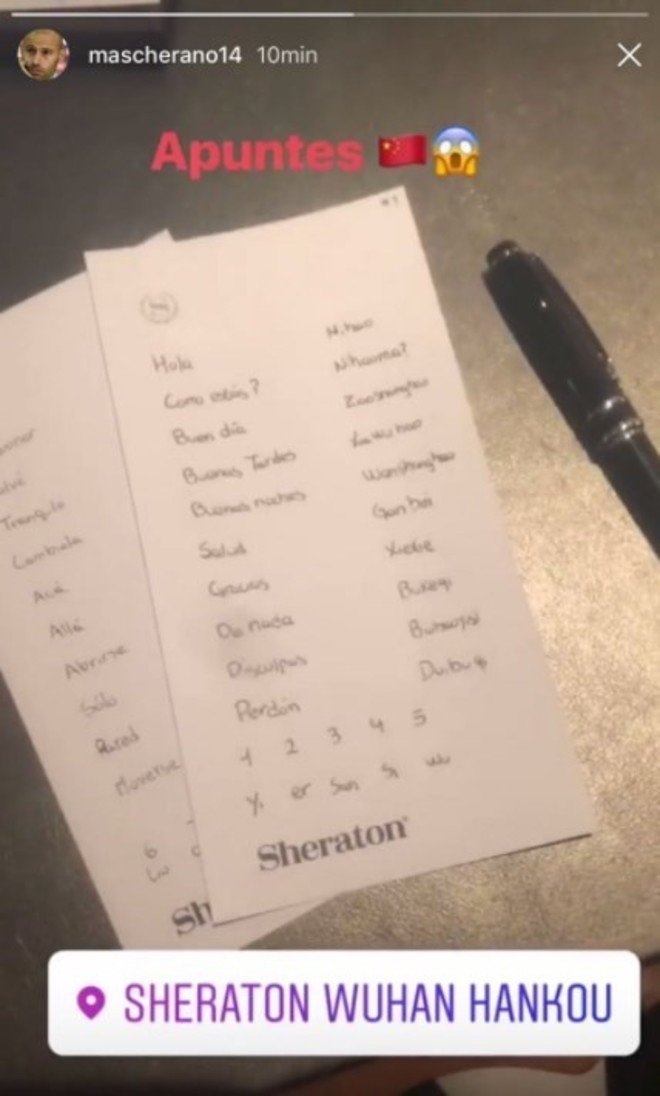 mascherano14 10min
Apuntes
Hola Nihao
Como estás? Nihaoma?
Buen dia
Buenas Tardes Xiawuhao
Buenas noches Wanshanghao
Salud Gan bei
Gracias Xiexie
De nada Bukeqi
Disculpas
Perdón Duibuqi
1 2 3 4 5
Yi er San Si wu
Sheraton
Tranquilo
Cambiala
Acá
Allá
Abrirse
Sólo
Pared
Moverse
6
Liu
Sh
SHERATON WUHAN HANKOU